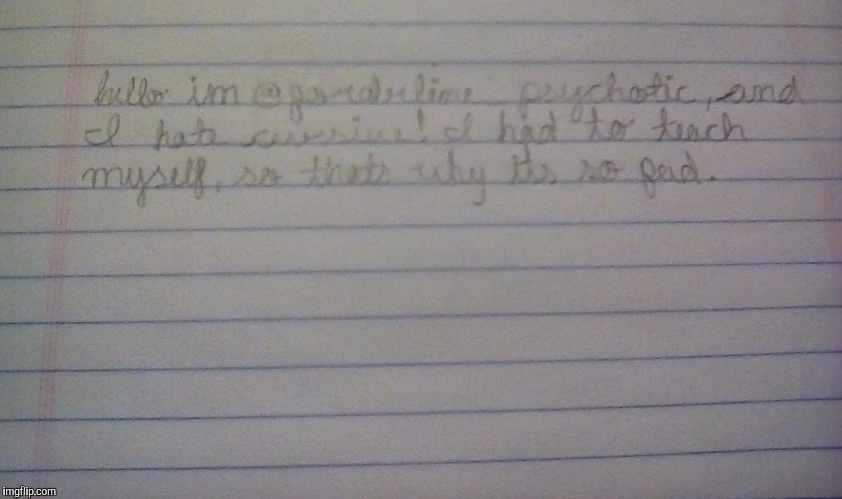 hello im @borderline psychotic, and
I hate cursive! I had to teach
myself, so thats why its so bad.
imgflip.com